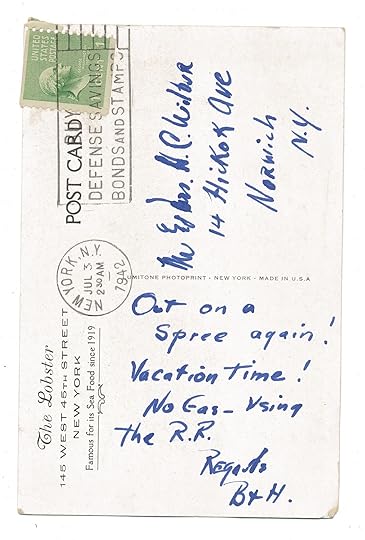 UNITED STATES
POSTAGE
POST CARD
BUY
DEFENSE SAVINGS
BONDS AND STAMPS
NEW YORK, N.Y.
JUL 3
2 30 AM
1942
Mr & Mrs. H. C. Wilbur
14 Hickok Ave
Norwich
N.Y.
LUMITONE PHOTOPRINT - NEW YORK - MADE IN U.S.A
Out on a
Spree again!
Vacation Time!
No Gas - Using
the R.R.
Regards
B & H.
The Lobster
145 WEST 45TH STREET
NEW YORK
Famous for its Sea Food since 1919